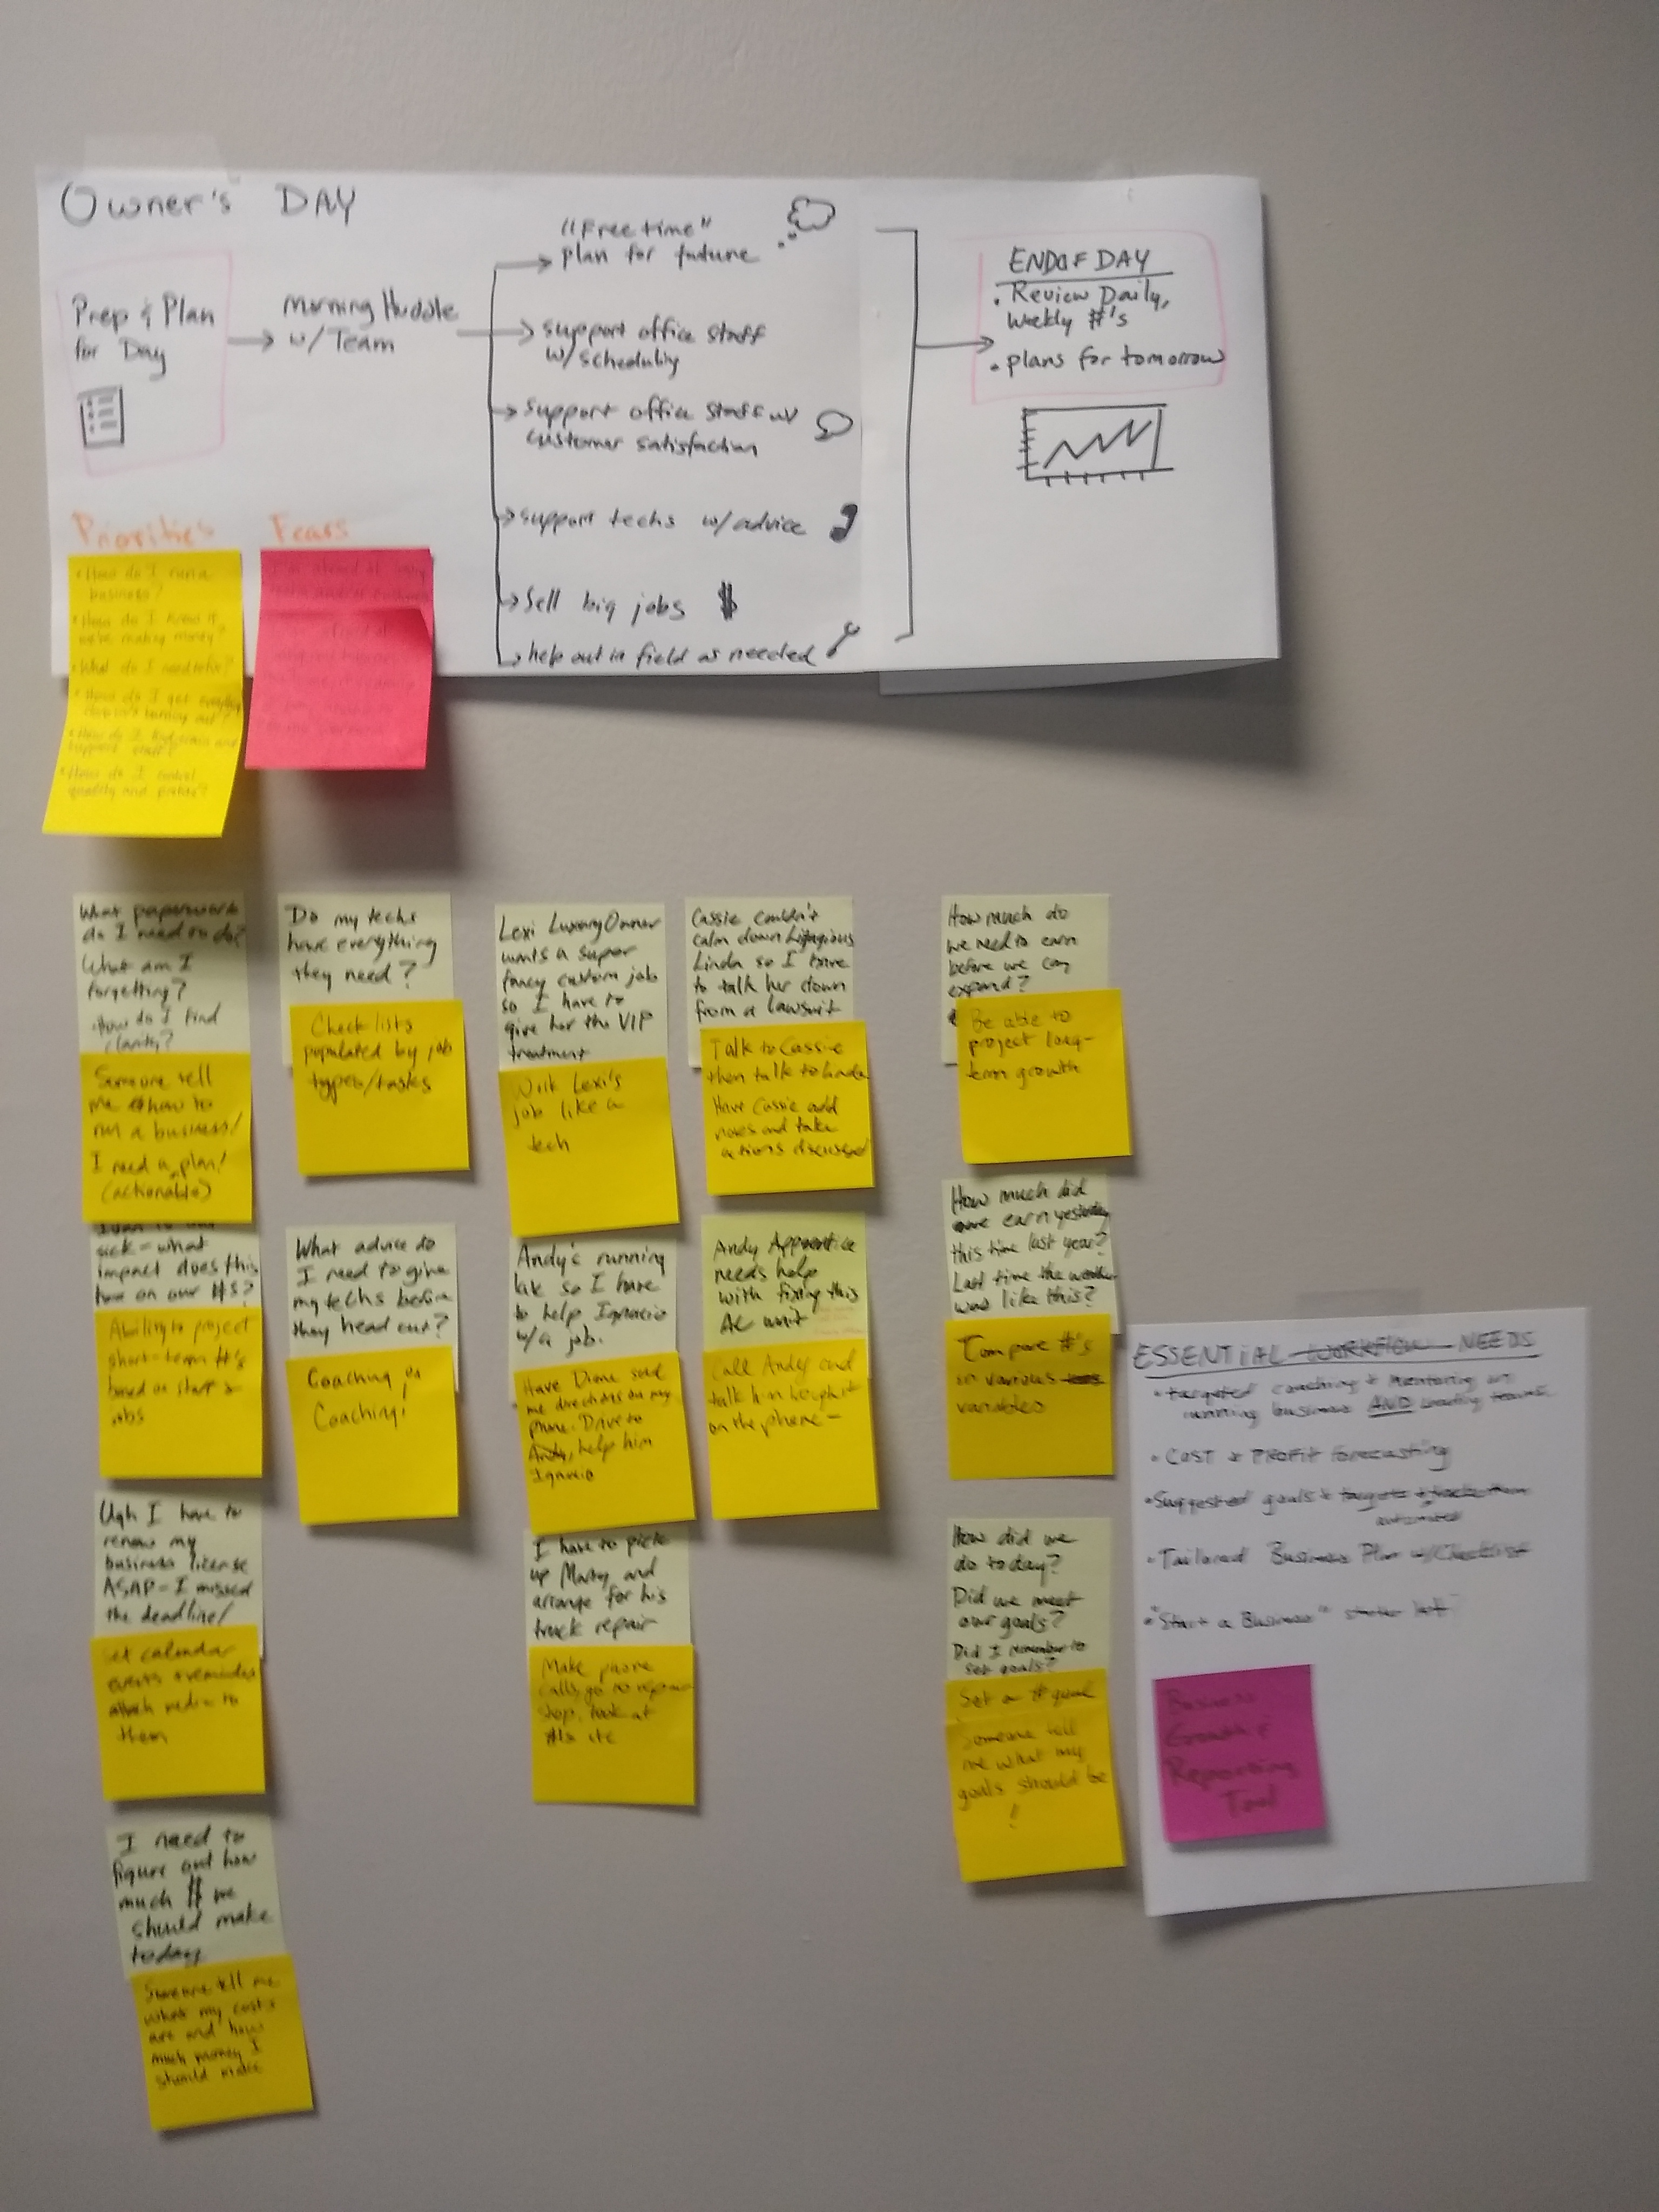 Owner's DAY
Prep & Plan
for Day
Morning Huddle
w/ Team
"Free time"
plan for future
support office staff
w/ scheduling
support office staff w/
customer satisfaction
support techs w/ advice
Sell big jobs $
help out in field as needed
END OF DAY
• Review Daily,
Weekly #'s
• plans for tomorrow
Priorities
• How do I run a
business?
• How do I know if
we're making money?
• What do I need to fix?
• How do I get everything
• How do I
support staff?
• How do I control
quality and
Fears
What paperwork
do I need to do?
What am I
forgetting?
How do I find
clarity?
Someone tell
me how to
run a business!
I need a plan!
(actionable)
sick = what
impact does this
have on our #s?
Ability to project
short-term #'s
based on staff &
jobs
Ugh I have to
renew my
business license
ASAP - I missed
the deadline!
Set calendar
events & reminders
attach to
them
I need to
figure out how
much $ we
should make
today
Someone tell me
what my costs
are and how
much money I
should make
Do my techs
have everything
they need?
Checklists
populated by job
types/tasks
What advice do
I need to give
my techs before
they head out?
Coaching on
Coaching!
Lexi LuxuryOwner
wants a super
fancy custom job
so I have to
give her the VIP
treatment
Work Lexi's
job like a
tech
Andy's running
late so I have
to help Ignacio
w/ a job.
Have Diane send
me directions on my
phone. Drive to
Andy, help him
Ignacio
I have to pick
up Marty and
arrange for his
truck repair
Make phone
calls, go to repair
shop, look at
#s etc
Cassie couldn't
calm down Litigious
Linda so I have
to talk her down
from a lawsuit
Talk to Cassie
then talk to Linda
Have Cassie add
notes and take
actions discussed
Andy Apprentice
needs help
with fixing this
AC unit
Call Andy and
talk him through it
on the phone -
How much do
we need to earn
before we can
expand?
Be able to
project long-
term growth
How much did
we earn yesterday
this time last year?
Last time the weather
was like this?
Compare #'s
in various
variables
How did we
do today?
Did we meet
our goals?
Did I remember to
set goals?
Set a # goal
Someone tell
me what my
goals should be
!
ESSENTIAL WORKFLOW NEEDS
• targeted coaching & mentoring on
running business AND leading teams
• COST & PROFIT forecasting
• Suggested goals & targets & track them
automated
• Tailored Business Plan w/ Checklist
• "Start a Business" starter kit
Business
Growth &
Reporting
Tool